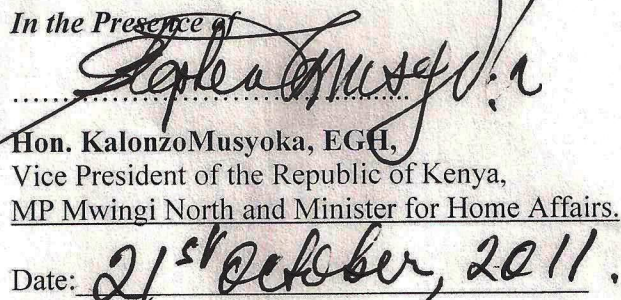 In the Presence of
Stephen Musyoka
Hon. KalonzoMusyoka, EGH,
Vice President of the Republic of Kenya,
MP Mwingi North and Minister for Home Affairs.
Date: 21st October, 2011.